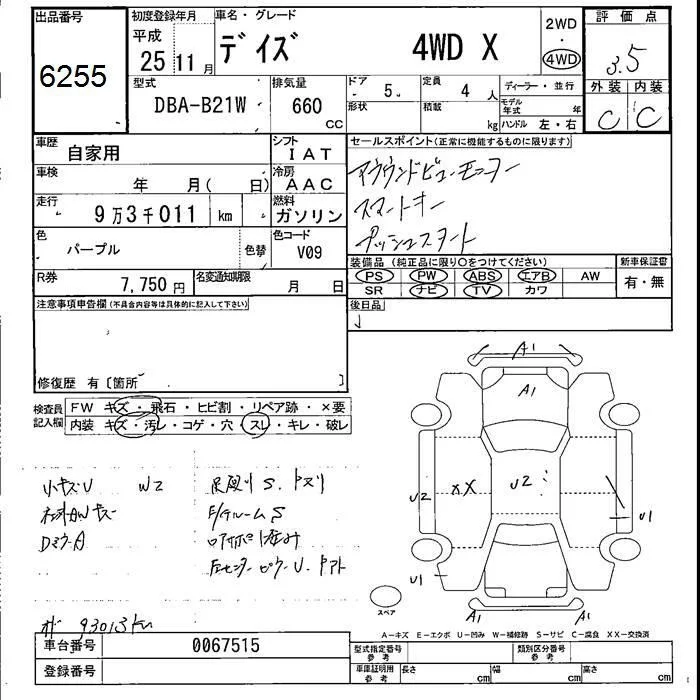 出品番号
6255
初度登録年月
平成
25年11月
車名・グレード
デイズ 4WD X
2WD
・
4WD
評価点
3.5
外装 内装
C C
型式
DBA-B21W
排気量
660 CC
ドア ・ 5
形状
定員 4 人
積載 kg
ディーラー・並行
モデル年式 年
ハンドル 左・右
車歴 自家用
シフト IAT
車検 年 月( 日)
冷房 AAC
走行 9万3千011 km
燃料 ガソリン
色 パープル 色替
色コード V09
R券 7,750円
名変通知期限 月 日
セールスポイント(正常に機能するものに限ります)
アラウンドビューモニター
スマートキー
プッシュスタート
装備品(純正品に限り〇をつけてください) 新車保証書
PS PW ABS エアB AW 有・無
SR ナビ TV カワ
後日品
注意事項申告欄(不具合内容等は具体的に記入して下さい)
修復歴 有〔箇所 〕
検査員記入欄
FW キズ・飛石・ヒビ割・リペア跡・×要
内装 キズ・汚レ・コゲ・穴・スレ・キレ・破レ
小キズU W2
DミラーA
F/Rルーム S
93013km
A1
A1
U2
XX
U2
U1
U1
A1
A1
スペア
A-キズ E-エクボ U-凹み W-補修跡 S-サビ C-腐食 XX-交換済
車台番号 0067515
登録番号
型式指定番号 参考
類別区分番号 参考
車庫証明用 参考 長さ cm 幅 cm 高さ cm